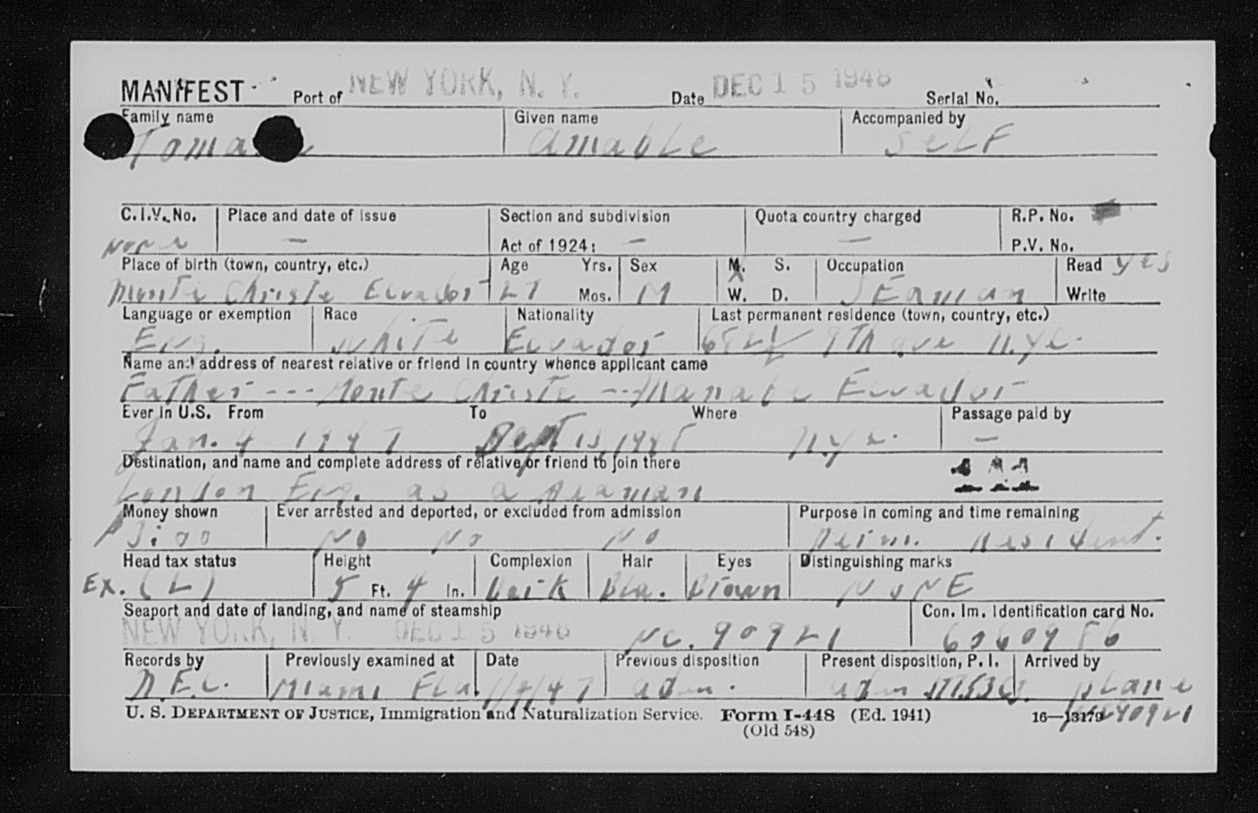 MANIFEST Port of NEW YORK, N. Y. Date DEC 15 1948 Serial No.
Family name Given name Accompanied by
Amable SELF
C.I.V. No. Place and date of issue Section and subdivision Quota country charged R.P. No.
None — Act of 1924: — — P.V. No.
Place of birth (town, country, etc.) Age Yrs. Sex M. S. Occupation Read yes
Monte Christe Ecuador 27 Mos. M W. D. SEaman Write
Language or exemption Race Nationality Last permanent residence (town, country, etc.)
Eng. White Ecuador 9th ave N.Y.C.
Name and address of nearest relative or friend in country whence applicant came
Father --- Monte Christe -- Manabe Ecuador
Ever in U.S. From To Where Passage paid by
Jan. 4 1947 Sept 1948 N.Y.C. —
Destination, and name and complete address of relative or friend to join there
London Eng. as a seaman
Money shown Ever arrested and deported, or excluded from admission Purpose in coming and time remaining
No No No Perm. Resident.
Head tax status Height Complexion Hair Eyes Distinguishing marks
Ex. (L) 5 Ft. 4 In. Dark Bla. Brown NoNE
Seaport and date of landing, and name of steamship Con. Im. Identification card No.
NEW YORK, N. Y. DEC 15 1948 NC. 90921
Records by Previously examined at Date Previous disposition Present disposition, P. I. Arrived by
Miami Fla. 1/4/47 adm. adm plane
U. S. DEPARTMENT OF JUSTICE, Immigration and Naturalization Service. Form I-448 (Ed. 1941) 16—13179 NC90921
(Old 548)